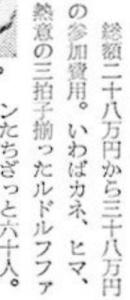 総額二十八万円から三十八万円
の参加費用。いわばカネ、ヒマ、
熱意の三拍子揃ったルドルフファ
ンたちざっと六十人。